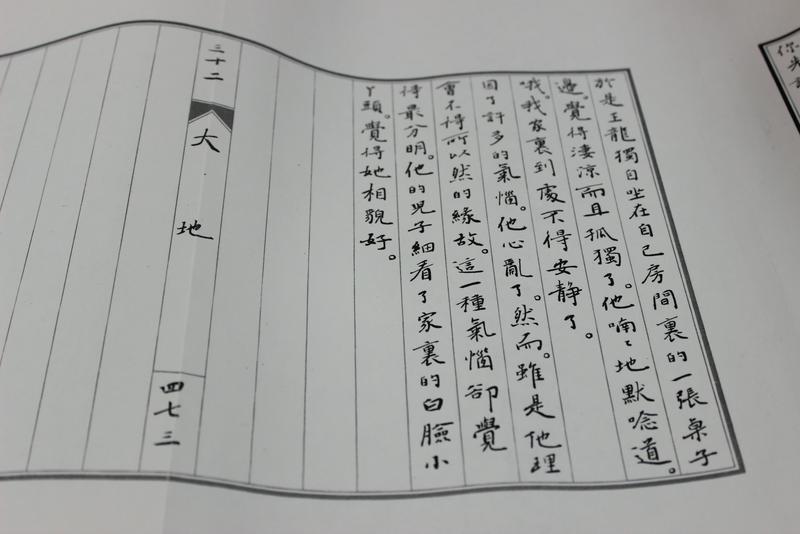 於是王龍獨自坐在自己房間裏的一張桌子
邊。覺得淒涼而且孤獨了。他喃〻地默唸道。
哦。我家裏到處不得安靜了。
因了許多的氣惱。他心亂了。然而。雖是他理
會不得所以然的緣故。這一種氣惱卻覺
得最分明。他的兒子細看了家裏的白臉小
丫頭。覺得她相貌好。
三十二
大地
四七三